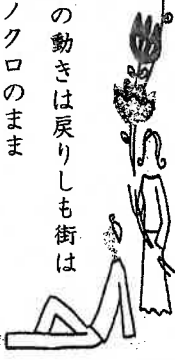 の動きは戻りしも街は
ノクロのまま